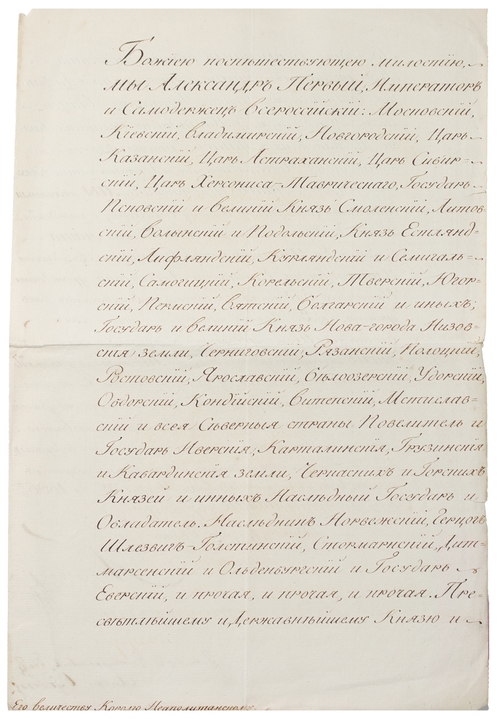 Божіею поспѣтествующею милостію,
мы Александръ Первый, Императоръ
и Самодержецъ Всероссійскій: Московскій,
Кіевскій, Владимирскій, Новгородскій, Царь
Казанскій, Царь Астраханскій, Царь Сибир-
скій, Царь Херсониса-Таврическаго, Государь
Псковскій и великій Князь Смоленскій, Литов
скій, Волынскій и Подольскій, Князь Естлянд-
скій, Лифляндскій, Курляндскій и Семигаль-
скій, Самогицкій, Корельскій, Тверскій, Югор-
скій, Пермскій, Вятскій, Болгарскій и иныхъ;
Государь и великій Князь Нова-города Низов-
скія земли, Черниговскій, Рязанскій, Полоцкій,
Ростовскій, Ярославскій, Бѣлоозерскій, Удорскій,
Обдорскій, Кондійскій, Витепскій, Мстислав-
скій и всея Сѣверныя страны Повелитель и
Государь Иверскія, Карталинскія, Грузинскія
и Кабардинскія земли, Черкаскихъ и Горскихъ
Князей и инныхъ Наслѣдный Государь и
Обладатель. Наслѣдникъ Норвежскій, Герцогъ
Шлезвигъ-Голстинскій, Стормарнскій, Дит-
марсенскій и Ольденбургскій и Государь
Еверскій, и прочая, и прочая, и прочая. Пре-
свѣтлѣйшему и Державнѣйшему Князю и
Его величества Королю Неаполитанскому